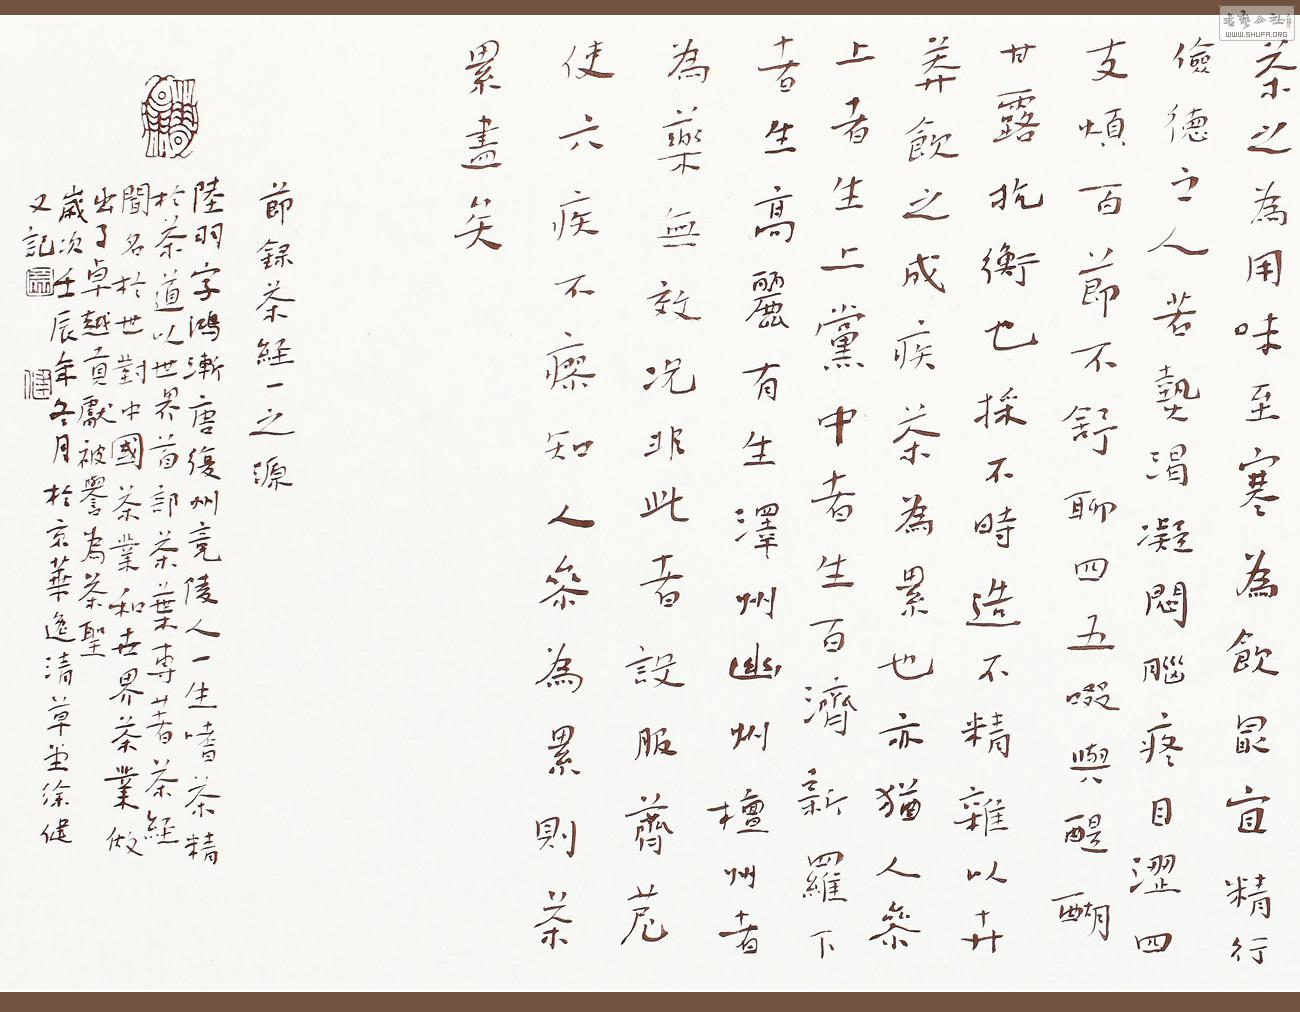 茶之為用味至寒為飲最宜精行
儉德之人若熱渴凝悶腦疼目澀四
支煩百節不舒聊四五啜與醍醐
甘露抗衡也採不時造不精雜以卉
莽飲之成疾茶為累也亦猶人參
上者生上黨中者生百濟新羅下
者生高麗有生澤州幽州檀州者
為藥無效況非此者設服薺苨
使六疾不瘳知人參為累則茶
累盡矣
節録茶経一之源
陸羽字鴻漸唐復州竟陵人一生嗜茶精
於茶道以世界首部茶葉專著茶経
聞名於世對中國茶業和世界茶業做
出了卓越貢獻被譽為茶聖
歲次壬辰年冬月於京華逸清草堂徐健
又記
書藝公社
WWW.SHUFA.ORG